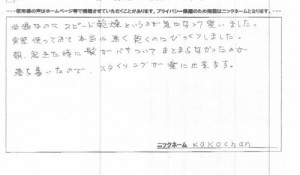 お客様の声はホームページ等で掲載させていただくことがあります。プライバシー保護のためお名前はニックネームとなります。
なってスピード乾燥というのが気になって買いました。
実際使ってみて本当に速く乾くのにびっくりしました。
朝、起きた時に髪がパサついてまとまらなかったのが
落ち着いたので、スタイリングが楽に出来ます。
ニックネーム kakochan